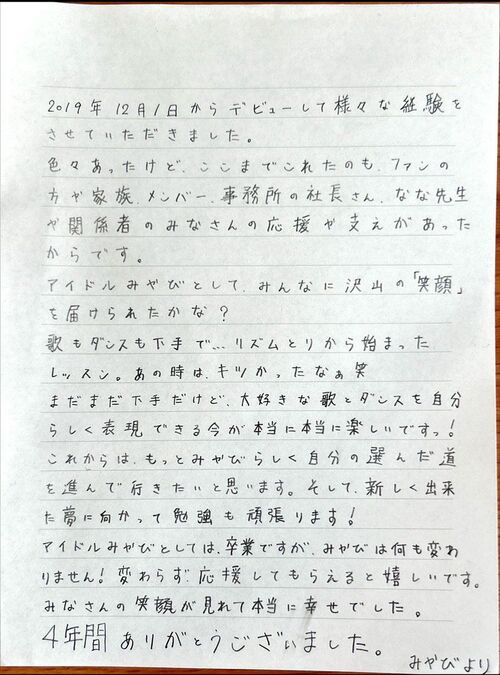 2019年12月1日からデビューして様々な経験を
させていただきました。
色々あったけど、ここまでこれたのも、ファンの
方や家族、メンバー、事務所の社長さん、なな先生
や関係者のみなさんの応援や支えがあった
からです。
アイドルみやびとして、みんなに沢山の「笑顔」
を届けられたかな?
歌もダンスも下手で... リズムとりから始まった
レッスン。あの時は、キツかったなぁ笑
まだまだ下手だけど、大好きな歌とダンスを自分
らしく表現できる今が本当に本当に楽しいですっ!
これからは、もっとみやびらしく自分の選んだ道
を進んで行きたいと思います。そして、新しく出来
た夢に向かって勉強も頑張ります!
アイドルみやびとしては、卒業ですが、みやびは何も変わ
りません!変わらず、応援してもらえると嬉しいです。
みなさんの笑顔が見れて本当に幸せでした。
4年間ありがとうございました。
みやびより